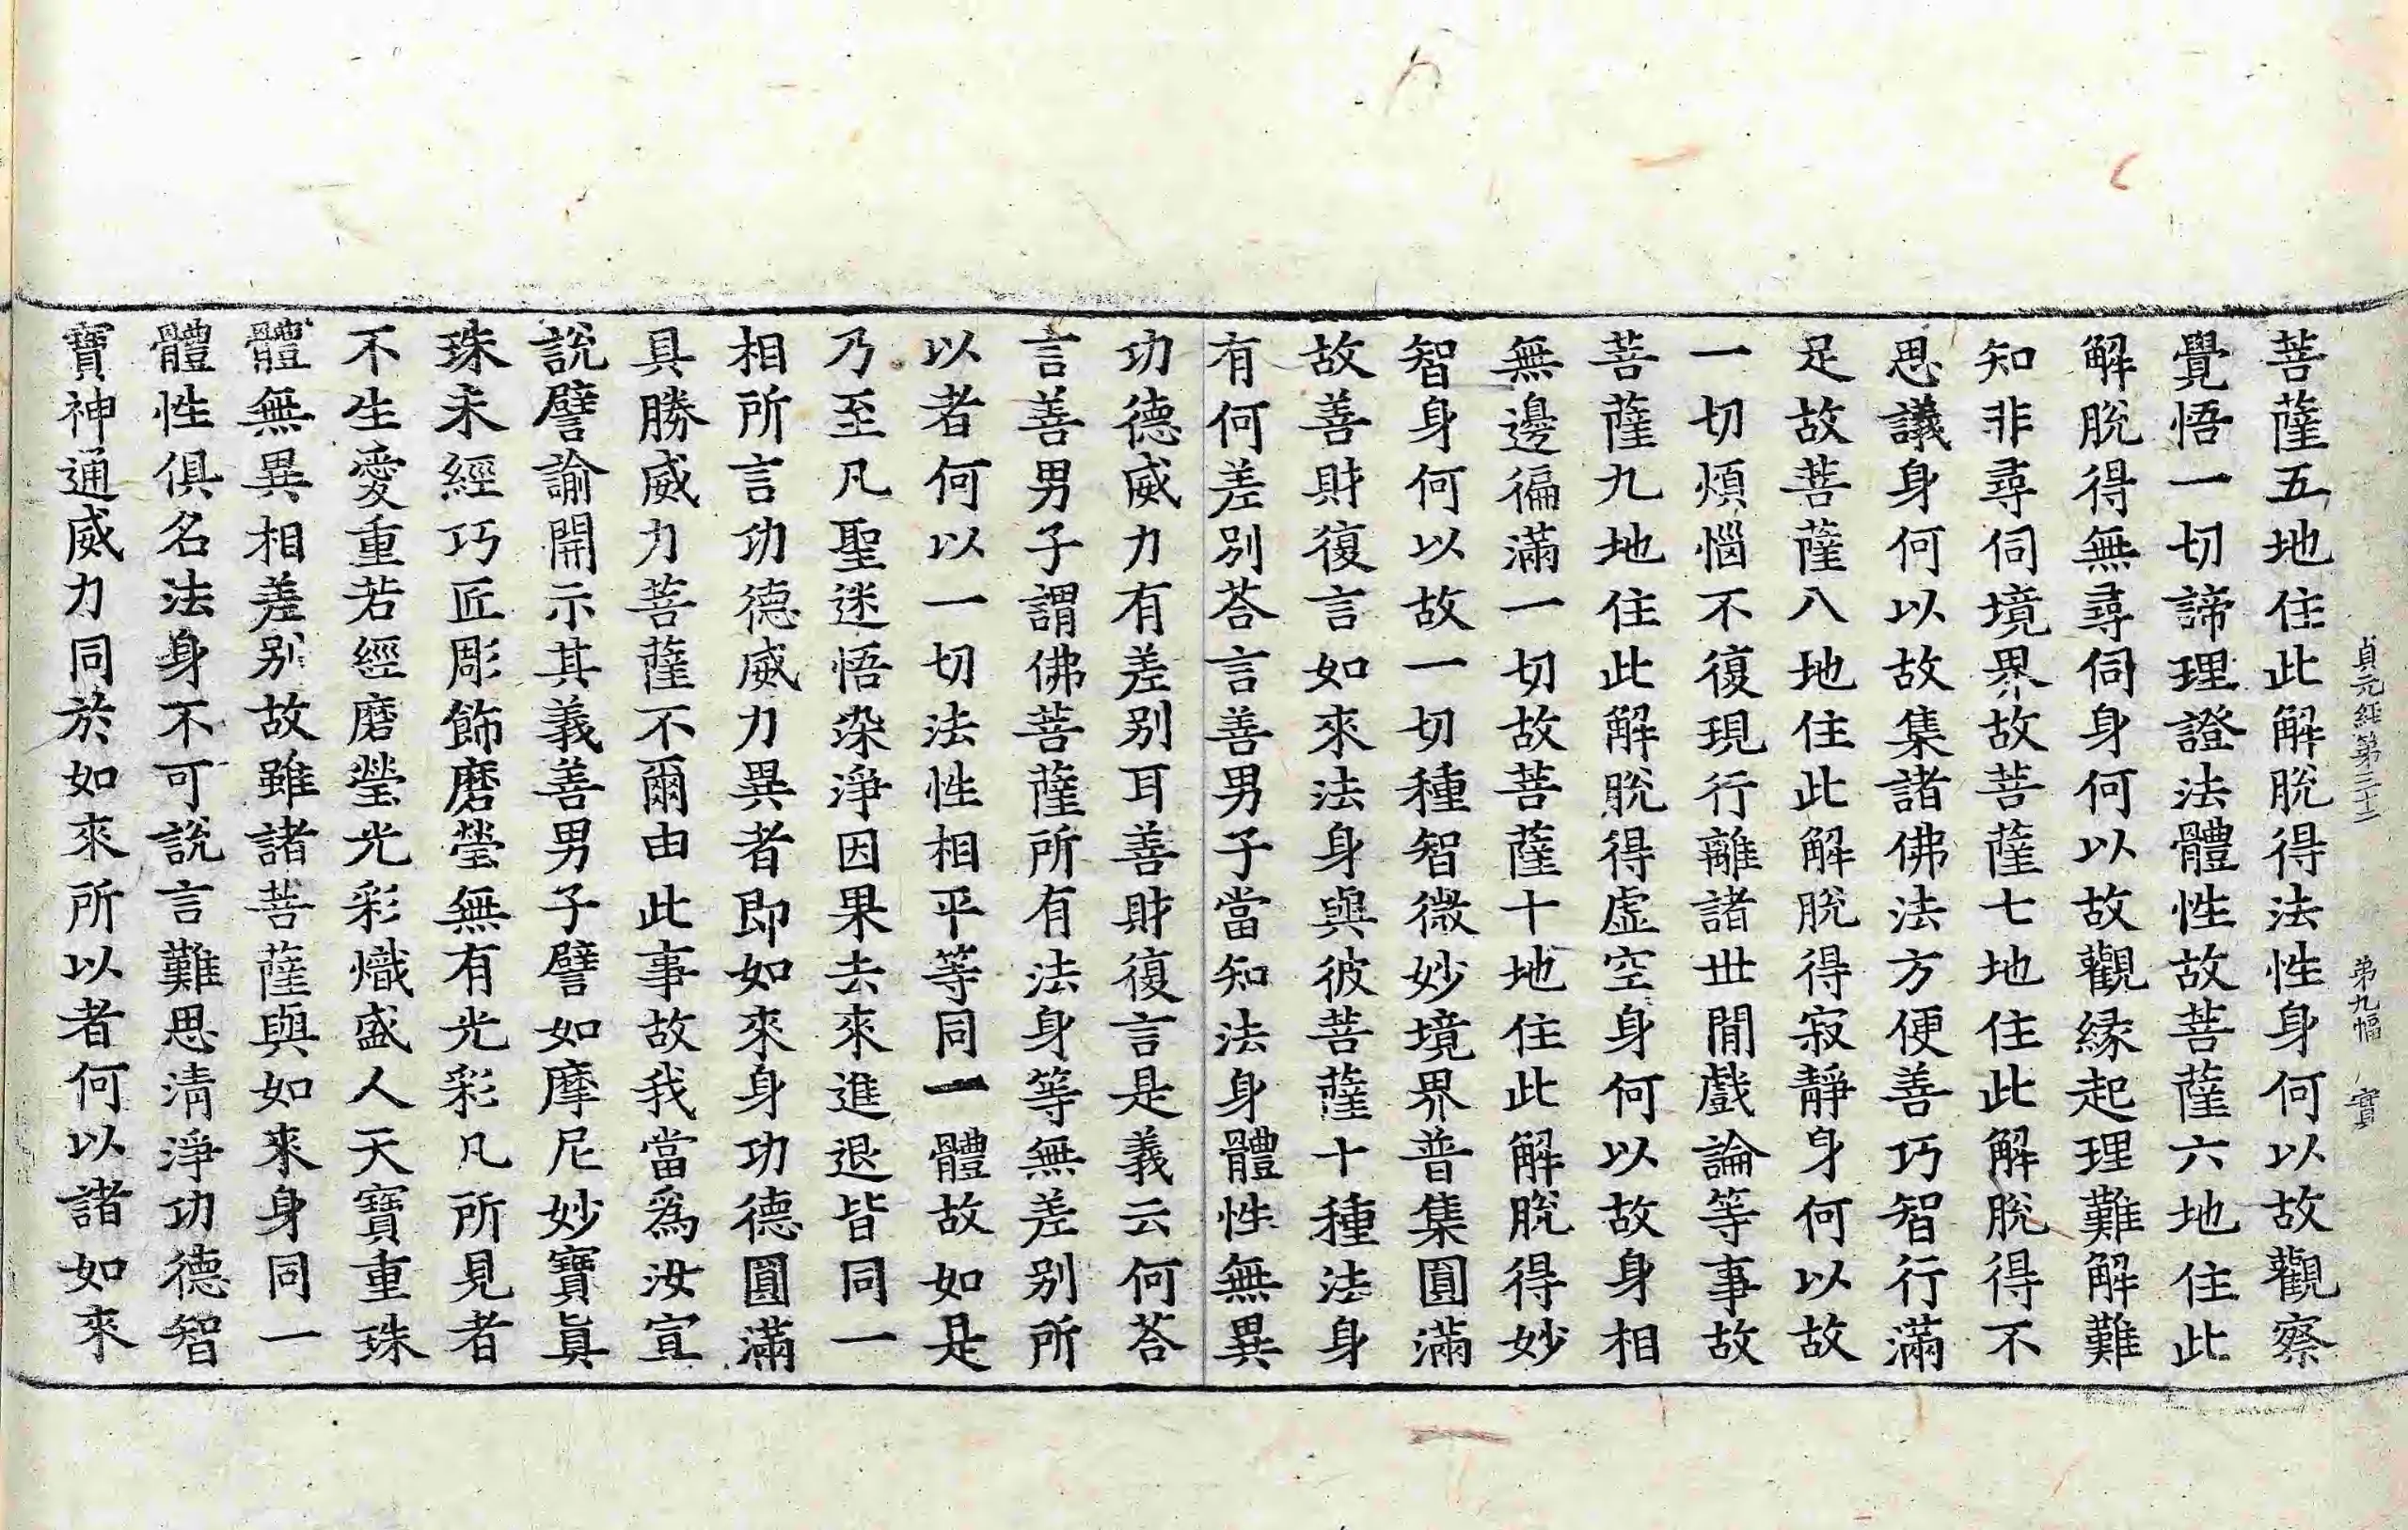 貞元經第三十二 苐九幅 實
菩薩五地住此解脫得法性身何以故觀察
覺悟一切諦理證法體性故菩薩六地住此
解脫得無尋伺身何以故觀緣起理難解難
知非尋伺境界故菩薩七地住此解脫得不
思議身何以故集諸佛法方便善巧智行滿
足故菩薩八地住此解脫得寂靜身何以故
一切煩惱不復現行離諸世間戲論等事故
菩薩九地住此解脫得虛空身何以故身相
無邊徧滿一切故菩薩十地住此解脫得妙
智身何以故一切種智微妙境界普集圓滿
故善財復言如來法身與彼菩薩十種法身
有何差別荅言善男子當知法身體性無異
功德威力有差别耳善財復言是義云何荅
言善男子謂佛菩薩所有法身等無差别所
以者何以一切法性相平等同一體故如是
乃至凡聖迷悟染淨因果去來進退皆同一
相所言功德威力異者即如來身功德圓滿
具勝威力菩薩不爾由此事故我當爲汝宣
說譬諭開示其義善男子譬如摩尼妙寶眞
珠未經巧匠彫飾磨瑩無有光彩凡所見者
不生愛重若經磨瑩光彩熾盛人天寶重珠
體無異相差别故雖諸菩薩與如來身同一
體性俱名法身不可說言難思清淨功德智
寶神通威力同於如來所以者何以諸如來